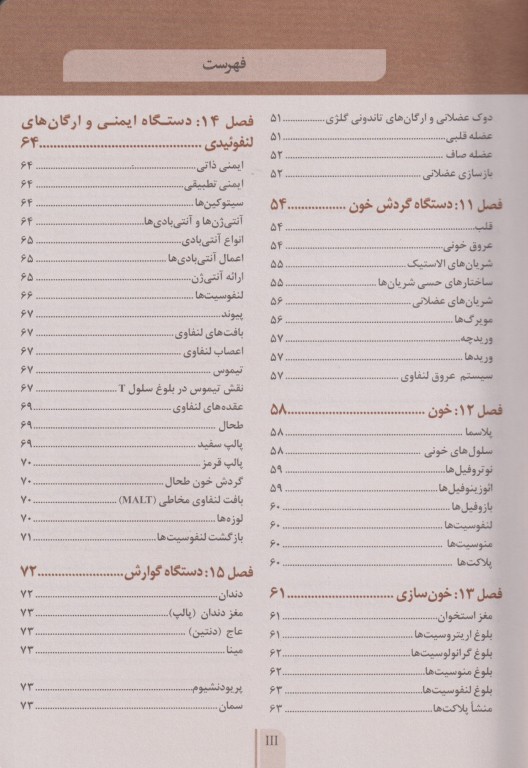 فهرست
دوک عضلانی و ارگان‌های تاندونی گلژی.................۵۱
عضله قلبی..................۵۱
عضله صاف..................۵۲
بازسازی عضلانی..................۵۲
فصل ۱۱: دستگاه گردش خون..................۵۴
قلب..................۵۴
عروق خونی..................۵۴
شریان‌های الاستیک..................۵۵
ساختارهای حسی شریان‌ها..................۵۵
شریان‌های عضلانی..................۵۶
مویرگ‌ها..................۵۶
وریدچه..................۵۷
وریدها..................۵۷
سیستم عروق لنفاوی..................۵۷
فصل ۱۲: خون..................۵۸
پلاسما..................۵۸
سلول‌های خونی..................۵۸
نوتروفیل‌ها..................۵۹
ائوزینوفیل‌ها..................۵۹
بازوفیل‌ها..................۶۰
لنفوسیت‌ها..................۶۰
منوسیت‌ها..................۶۰
پلاکت‌ها..................۶۰
فصل ۱۳: خون‌سازی..................۶۱
مغز استخوان..................۶۱
بلوغ اریتروسیت‌ها..................۶۱
بلوغ گرانولوسیت‌ها..................۶۲
بلوغ منوسیت‌ها..................۶۲
بلوغ لنفوسیت‌ها..................۶۳
منشأ پلاکت‌ها..................۶۳
فصل ۱۴: دستگاه ایمنی و ارگان‌های
لنفوئیدی..................۶۴
ایمنی ذاتی..................۶۴
ایمنی تطبیقی..................۶۴
سیتوکین‌ها..................۶۴
آنتی‌ژن‌ها و آنتی‌بادی‌ها..................۶۴
انواع آنتی‌بادی..................۶۵
اعمال آنتی‌بادی‌ها..................۶۵
ارائه آنتی‌ژن..................۶۵
لنفوسیت‌ها..................۶۶
پیوند..................۶۷
بافت‌های لنفاوی..................۶۷
اعصاب لنفاوی..................۶۷
تیموس..................۶۷
نقش تیموس در بلوغ سلول T..................۶۷
عقده‌های لنفاوی..................۶۹
طحال..................۶۹
پالپ سفید..................۶۹
پالپ قرمز..................۷۰
گردش خون طحال..................۷۰
بافت لنفاوی مخاطی (MALT)..................۷۰
لوزه‌ها..................۷۰
بازگشت لنفوسیت‌ها..................۷۱
فصل ۱۵: دستگاه گوارش..................۷۲
دندان..................۷۲
مغز دندان (پالپ)..................۷۳
عاج (دنتین)..................۷۳
مینا..................۷۳
پریودنشیوم..................۷۳
سمان..................۷۳
III